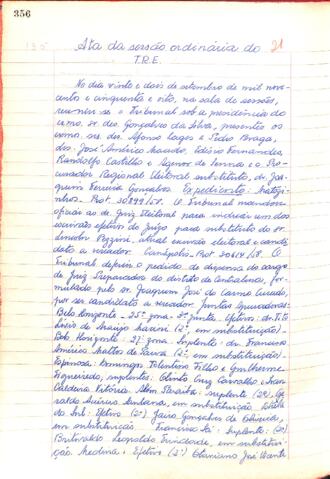 356
195
21
Ata da sessão ordinária do
T.R.E.
No dia vinte e dois de setembro de mil nove-
cento e cinquenta e oito, na sala de sessões,
reuniu-se o Tribunal sob a presidência do
exmo. sr. des. Gonçalves da Silva, presentes os
exmo. srs. des. Afonso Lages e Pedro Braga,
drs. José Américo Macedo, Edésio Fernandes,
Randolfo Castilho e Agenor de Senna e o Pro-
curador Regional Eleitoral substituto, dr. Joa-
quim Ferreira Gonçalves. Expediente: Matozi-
nhos. Prot. 30899/58. O Tribunal mandou
oficiar ao dr. Juiz Eleitoral para indicar um dos
escrivães efetivo do Juízo para substituto do sr.
Lindor Pezzini, atual escrivão eleitoral e candi-
dato a vereador. Prot. 30619/58. O
Tribunal deferiu o pedido de dispensa do cargo
de Juiz Preparador do distrito de Cristalina, for-
mulado pelo sr. Joaquim José do Carmo
por ser candidato a vereador. Juntas Apuradoras:
Belo Horizonte - 25ª zona - 3ª junta. Efetivo: dr. Tito
Lívio de Araújo (2º, em substituição)
Belo Horizonte: 27ª zona: Suplente: dr. Francisco
Américo Mattos de Paiva (2º, em substituição).
Espinosa: Domingos Tolentino Filho e Guilherme
Figueiredo, suplentes. Olinto Cruz Carvalho e
Caldeira Vitória. Além Paraíba: suplente (2º)
Santana, em substituição.
do Sul: Efetivo (2º) Jairo Gonçalves de Oliveira,
em substituição. Francisco Sá: Suplente: (2º)
Leopoldo Trindade, em substitui-
ção. Medina: Efetivo (2º) José